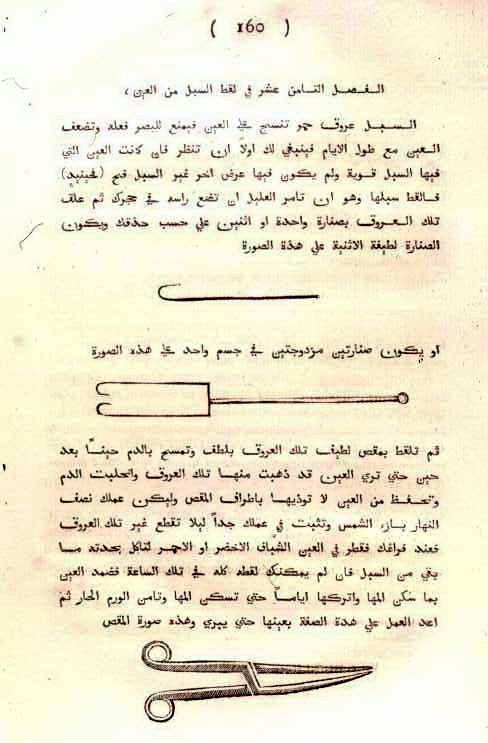 ( 160 )
الـفصـل الثـامـن عشـر في لقط السبل من العين ،
السـبـل عروق حمر تنسج علي العين فيمنع للبصر فعله وتضعف
العـين مع طول الايام فينبغي لك اولاً ان تنظر فان كانت العين التي
فيها السبل قوية ولم يكون فيها عرض اخر غير السبل فـح (فحينيذٍ)
فالقط سبلها وهو ان تامر العليل ان تضع راسه في حجرك ثم علق
تلك العـروق بصنارة واحدة او اثنين علي حسب حذقك ويكون
الصنارة لطيفة الاثنية علي هذة الصورة
او يكون صنارتين مزدوجتين في جسم واحد علي هذه الصورة
ثم تلقط بمقص لطيف تلك العروق بلطف وتمسح بالدم حيناً بعد
حين حتي تري العين قد ذهبت منها تلك العروق وانحلبت الدم
وتحـفـظ من العين لا توذيها باطراف المقص وليكن عملك نصف
النهار بـازء الشمس وتثبت في عملك جداً ليلا تقطع غير تلك العروق
فعند فراغك فقطر في العين الشياف الاخضر او الاحمر لتاكل بحدته مـا
بقي من السبل فان لم يمكنك لقطه كله في تلك الساعة فضمد العين
بما سكن المها واتركها ايامـاً حتي تسكن المها وتامن الورم الحار ثم
اعد العمل علي هذة الصفة بعينها حتي يبري وهذه صورة المقص